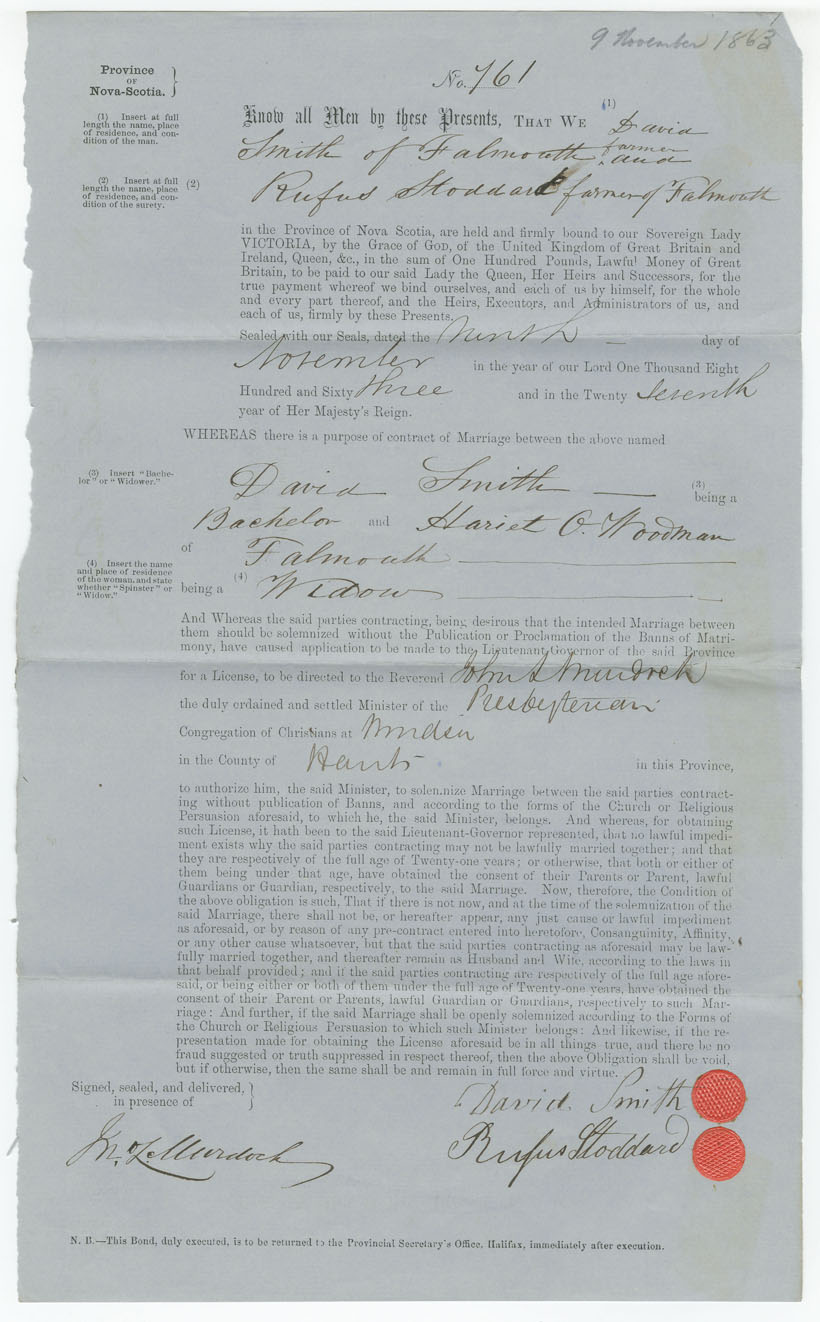 9 November 1863
Province
OF
Nova-Scotia.
No. 761
(1) Insert at full
length the name, place
of residence, and con-
dition of the man.
Know all Men by these Presents, THAT WE (1) David
Smith of Falmouth farmer and
(2) Insert at full
length the name, place
of residence, and con-
dition of the surety.
(2) Rufus Stoddart farmer of Falmouth
in the Province of Nova Scotia, are held and firmly bound to our Sovereign Lady
VICTORIA, by the Grace of GOD, of the United Kingdom of Great Britain and
Ireland, Queen, &c., in the sum of One Hundred Pounds, Lawful Money of Great
Britain, to be paid to our said Lady the Queen, Her Heirs and Successors, for the
true payment whereof we bind ourselves, and each of us by himself, for the whole
and every part thereof, and the Heirs, Executors, and Administrators of us, and
each of us, firmly by these Presents.
Sealed with our Seals, dated the Ninth day of
November in the year of our Lord One Thousand Eight
Hundred and Sixty three and in the Twenty Seventh
year of Her Majesty's Reign.
WHEREAS there is a purpose of contract of Marriage between the above named
(3) Insert "Bache-
lor" or "Widower."
David Smith (3) being a
Bachelor and Hariet O. Woodman
of Falmouth
(4) Insert the name
and place of residence
of the woman, and state
whether "Spinster" or
"Widow."
being a (4) Widow
And Whereas the said parties contracting, being desirous that the intended Marriage between
them should be solemnized without the Publication or Proclamation of the Banns of Matri-
mony, have caused application to be made to the Lieutenant-Governor of the said Province
for a License, to be directed to the Reverend John L Murdock
the duly ordained and settled Minister of the Presbyterian
Congregation of Christians at Windsor
in the County of Hants in this Province,
to authorize him, the said Minister, to solemnize Marriage between the said parties contract-
ing without publication of Banns, and according to the forms of the Church or Religious
Persuasion aforesaid, to which he, the said Minister, belongs. And whereas, for obtaining
such License, it hath been to the said Lieutenant-Governor represented, that no lawful impedi-
ment exists why the said parties contracting may not be lawfully married together; and that
they are respectively of the full age of Twenty-one years; or otherwise, that both or either of
them being under that age, have obtained the consent of their Parents or Parent, lawful
Guardians or Guardian, respectively, to the said Marriage. Now, therefore, the Condition of
the above obligation is such, That if there is not now, and at the time of the solemnization of the
said Marriage, there shall not be, or hereafter appear, any just cause or lawful impediment
as aforesaid, or by reason of any pre-contract entered into heretofore, Consanguinity, Affinity,
or any other cause whatsoever, but that the said parties contracting as aforesaid may be law-
fully married together, and thereafter remain as Husband and Wife, according to the laws in
that behalf provided; and if the said parties contracting are respectively of the full age afore-
said, or being either or both of them under the full age of Twenty-one years, have obtained the
consent of their Parent or Parents, lawful Guardian or Guardians, respectively to such Mar-
riage: And further, if the said Marriage shall be openly solemnized according to the Forms of
the Church or Religious Persuasion to which such Minister belongs: And likewise, if the re-
presentation made for obtaining the License aforesaid be in all things true, and there be no
fraud suggested or truth suppressed in respect thereof, then the above Obligation shall be void,
but if otherwise, then the same shall be and remain in full force and virtue.
Signed, sealed, and delivered,
in presence of
David Smith
Jn. L. Murdoch
Rufus Stoddard
N. B.—This Bond, duly executed, is to be returned to the Provincial Secretary's Office, Halifax, immediately after execution.